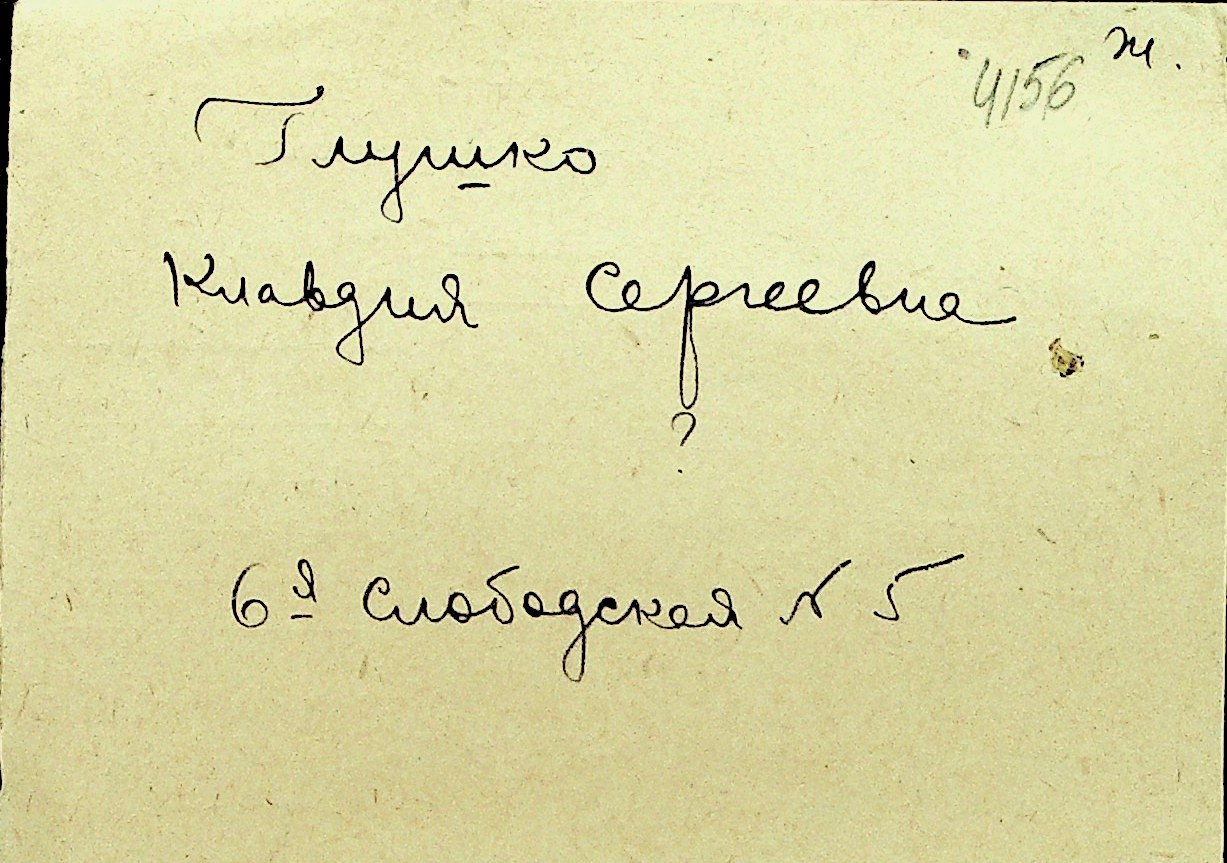 4156 ж.
Глушко
Клавдия Сергеевна
?
6я Слободская N 5